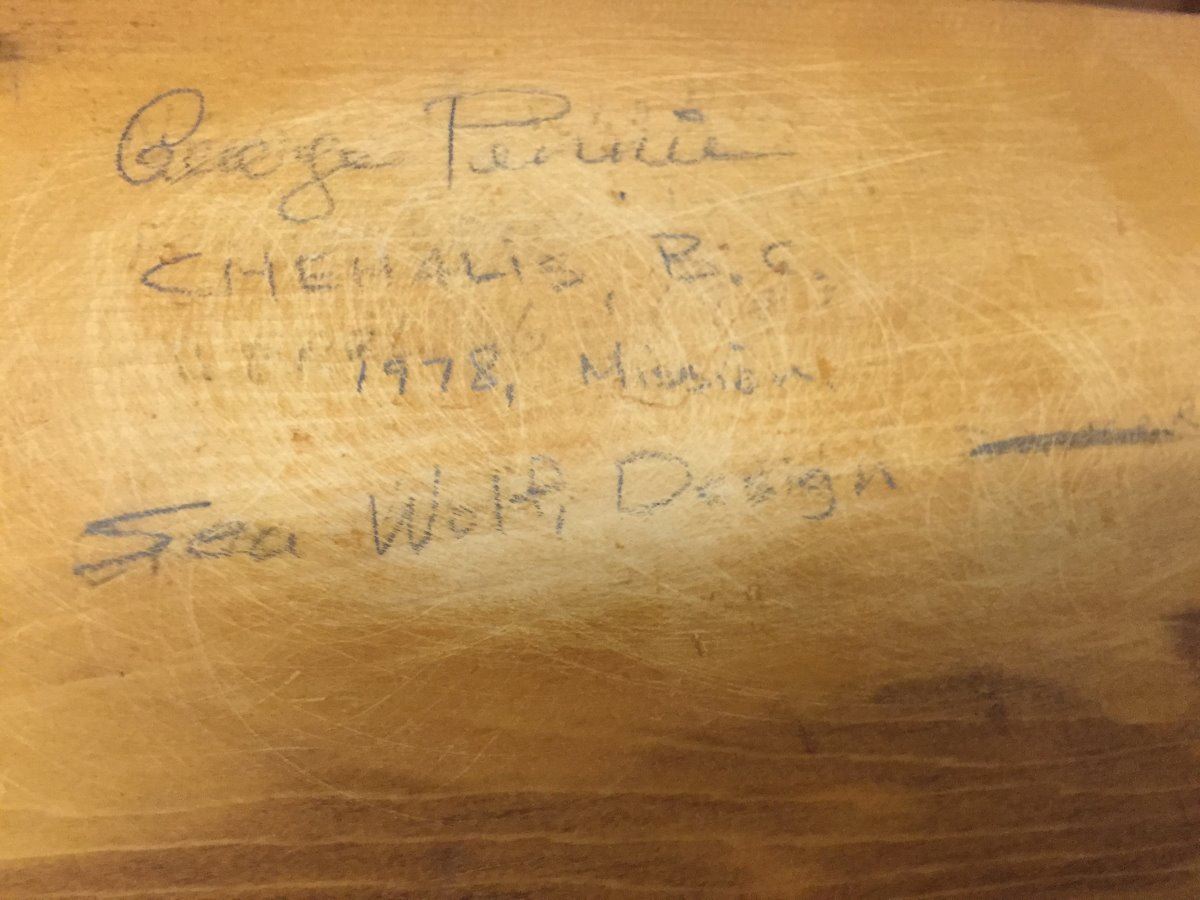 George Pennie
CHEHALIS, B.C.
1978, Mission.
Sea Wolf, Design